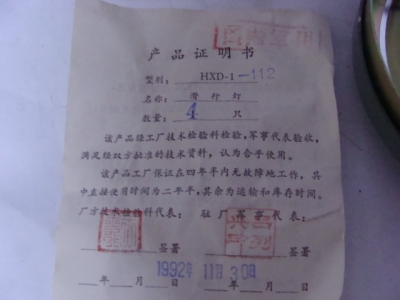 产品证明书
型别: HXD-1-112
名称: 滑行灯
数量: 4 只
该产品经工厂技术检验科检验,军事代表验收,
满足经双方批准的技术资料,认为合乎使用。
该产品工厂保证在四年半内无故障地工作,其
中直接使用时间为二年半,其余为运输和库存时间。
厂方技术检验科代表: 驻厂军事代表:
签署 签署
1992年 11月30日
年 月 日 年 月 日